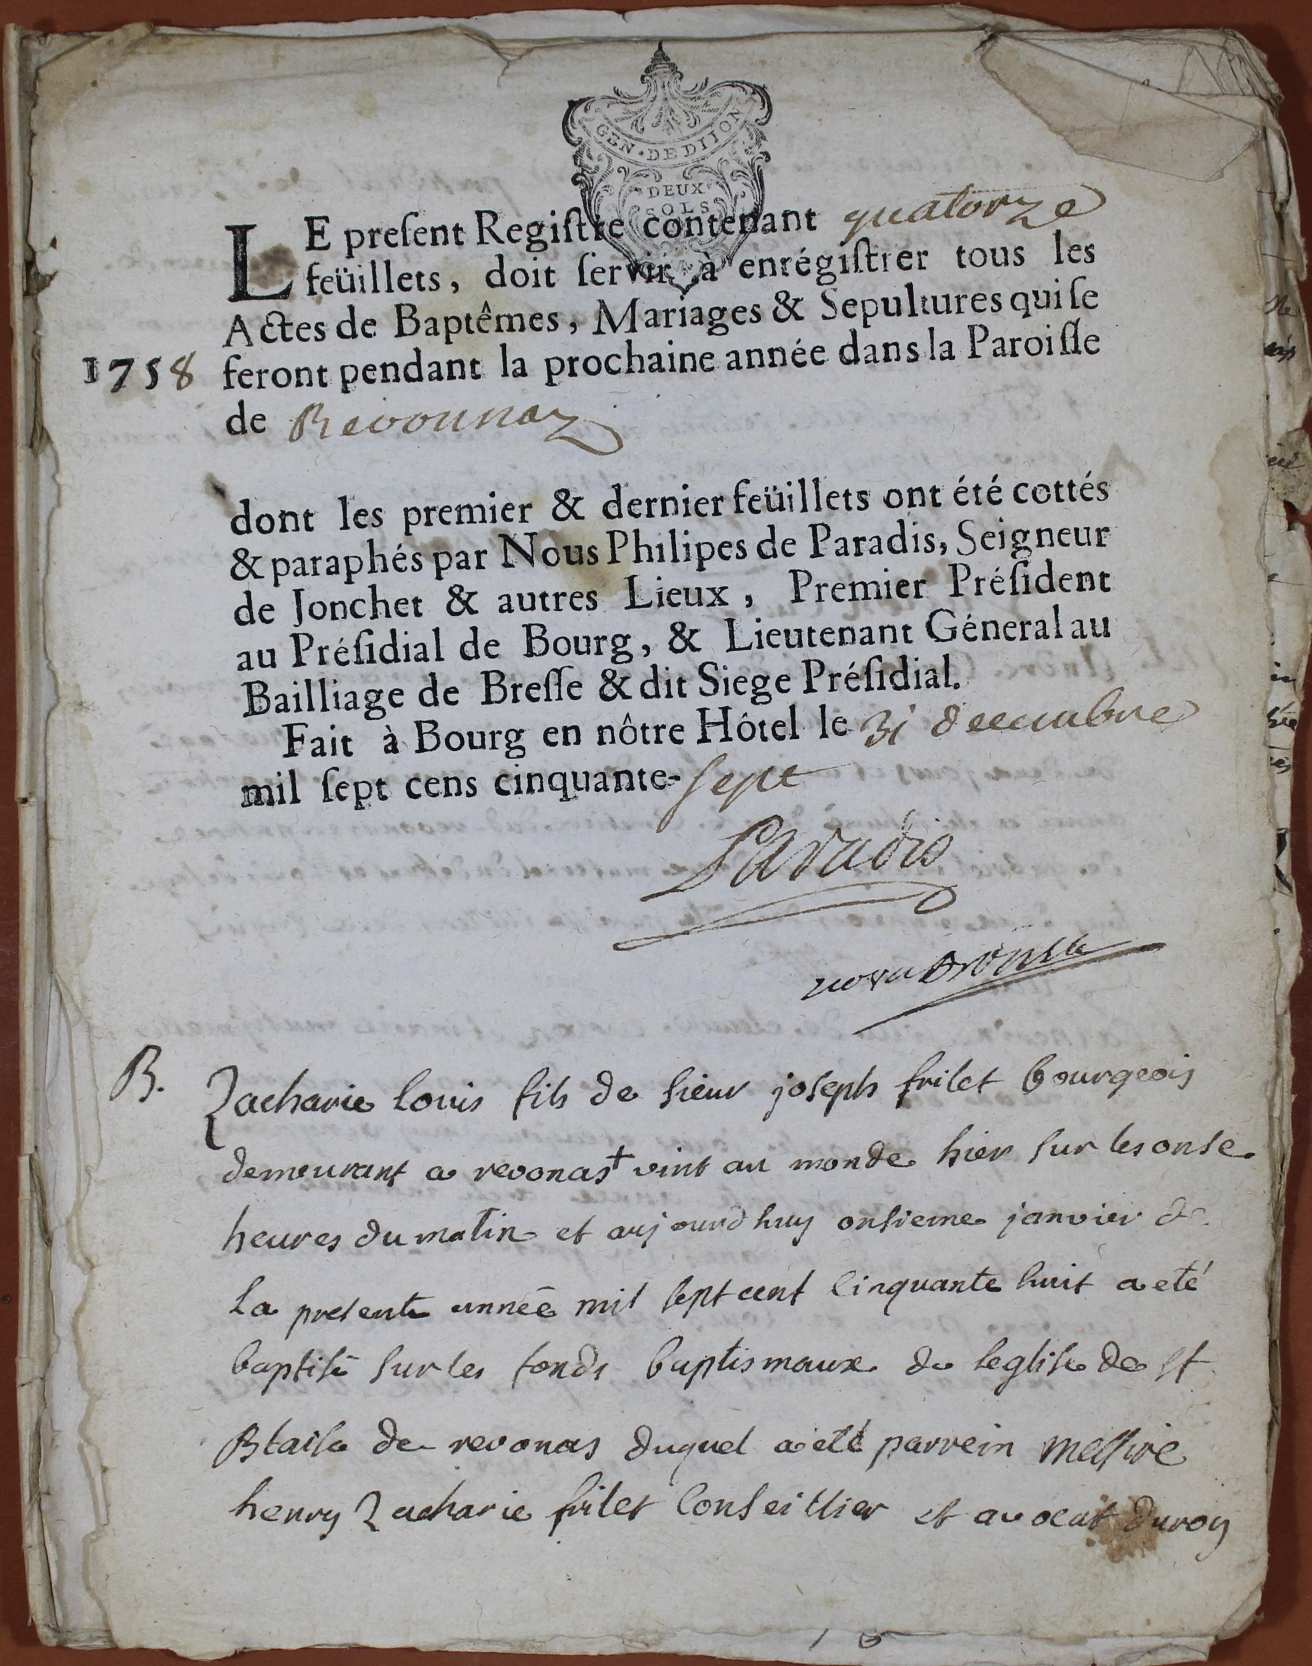 GEN · DE DIJON
DEUX
SOLS
LE preſent Regiſtre contenant quatorze
feüillets, doit ſervir à enrégiſtrer tous les
Actes de Baptêmes, Mariages & Sepultures qui ſe
1758 feront pendant la prochaine année dans la Paroiſſe
de Revonnaz
dont les premier & dernier feüillets ont été cottés
& paraphés par Nous Philipes de Paradis, Seigneur
de Jonchet & autres Lieux, Premier Préſident
au Préſidial de Bourg, & Lieutenant Géneral au
Bailliage de Breſſe & dit Siege Préſidial.
Fait à Bourg en nôtre Hôtel le 31 decembre
mil ſept cens cinquante-sept
Paradis
B. Zacharie louis fils de sieur joseph frilet bourgeois
demeurant a revonas + vint au monde hier sur les onse
heures du matin et aujourdhuy onsieme janvier de
la presente année mil sept cent cinquante huit a eté
baptisé sur les fonds baptismaux de leglise de st
Blaise de revonas duquel a eté parrein messire
henry Zacharie frilet Conseillier et avocat du roy